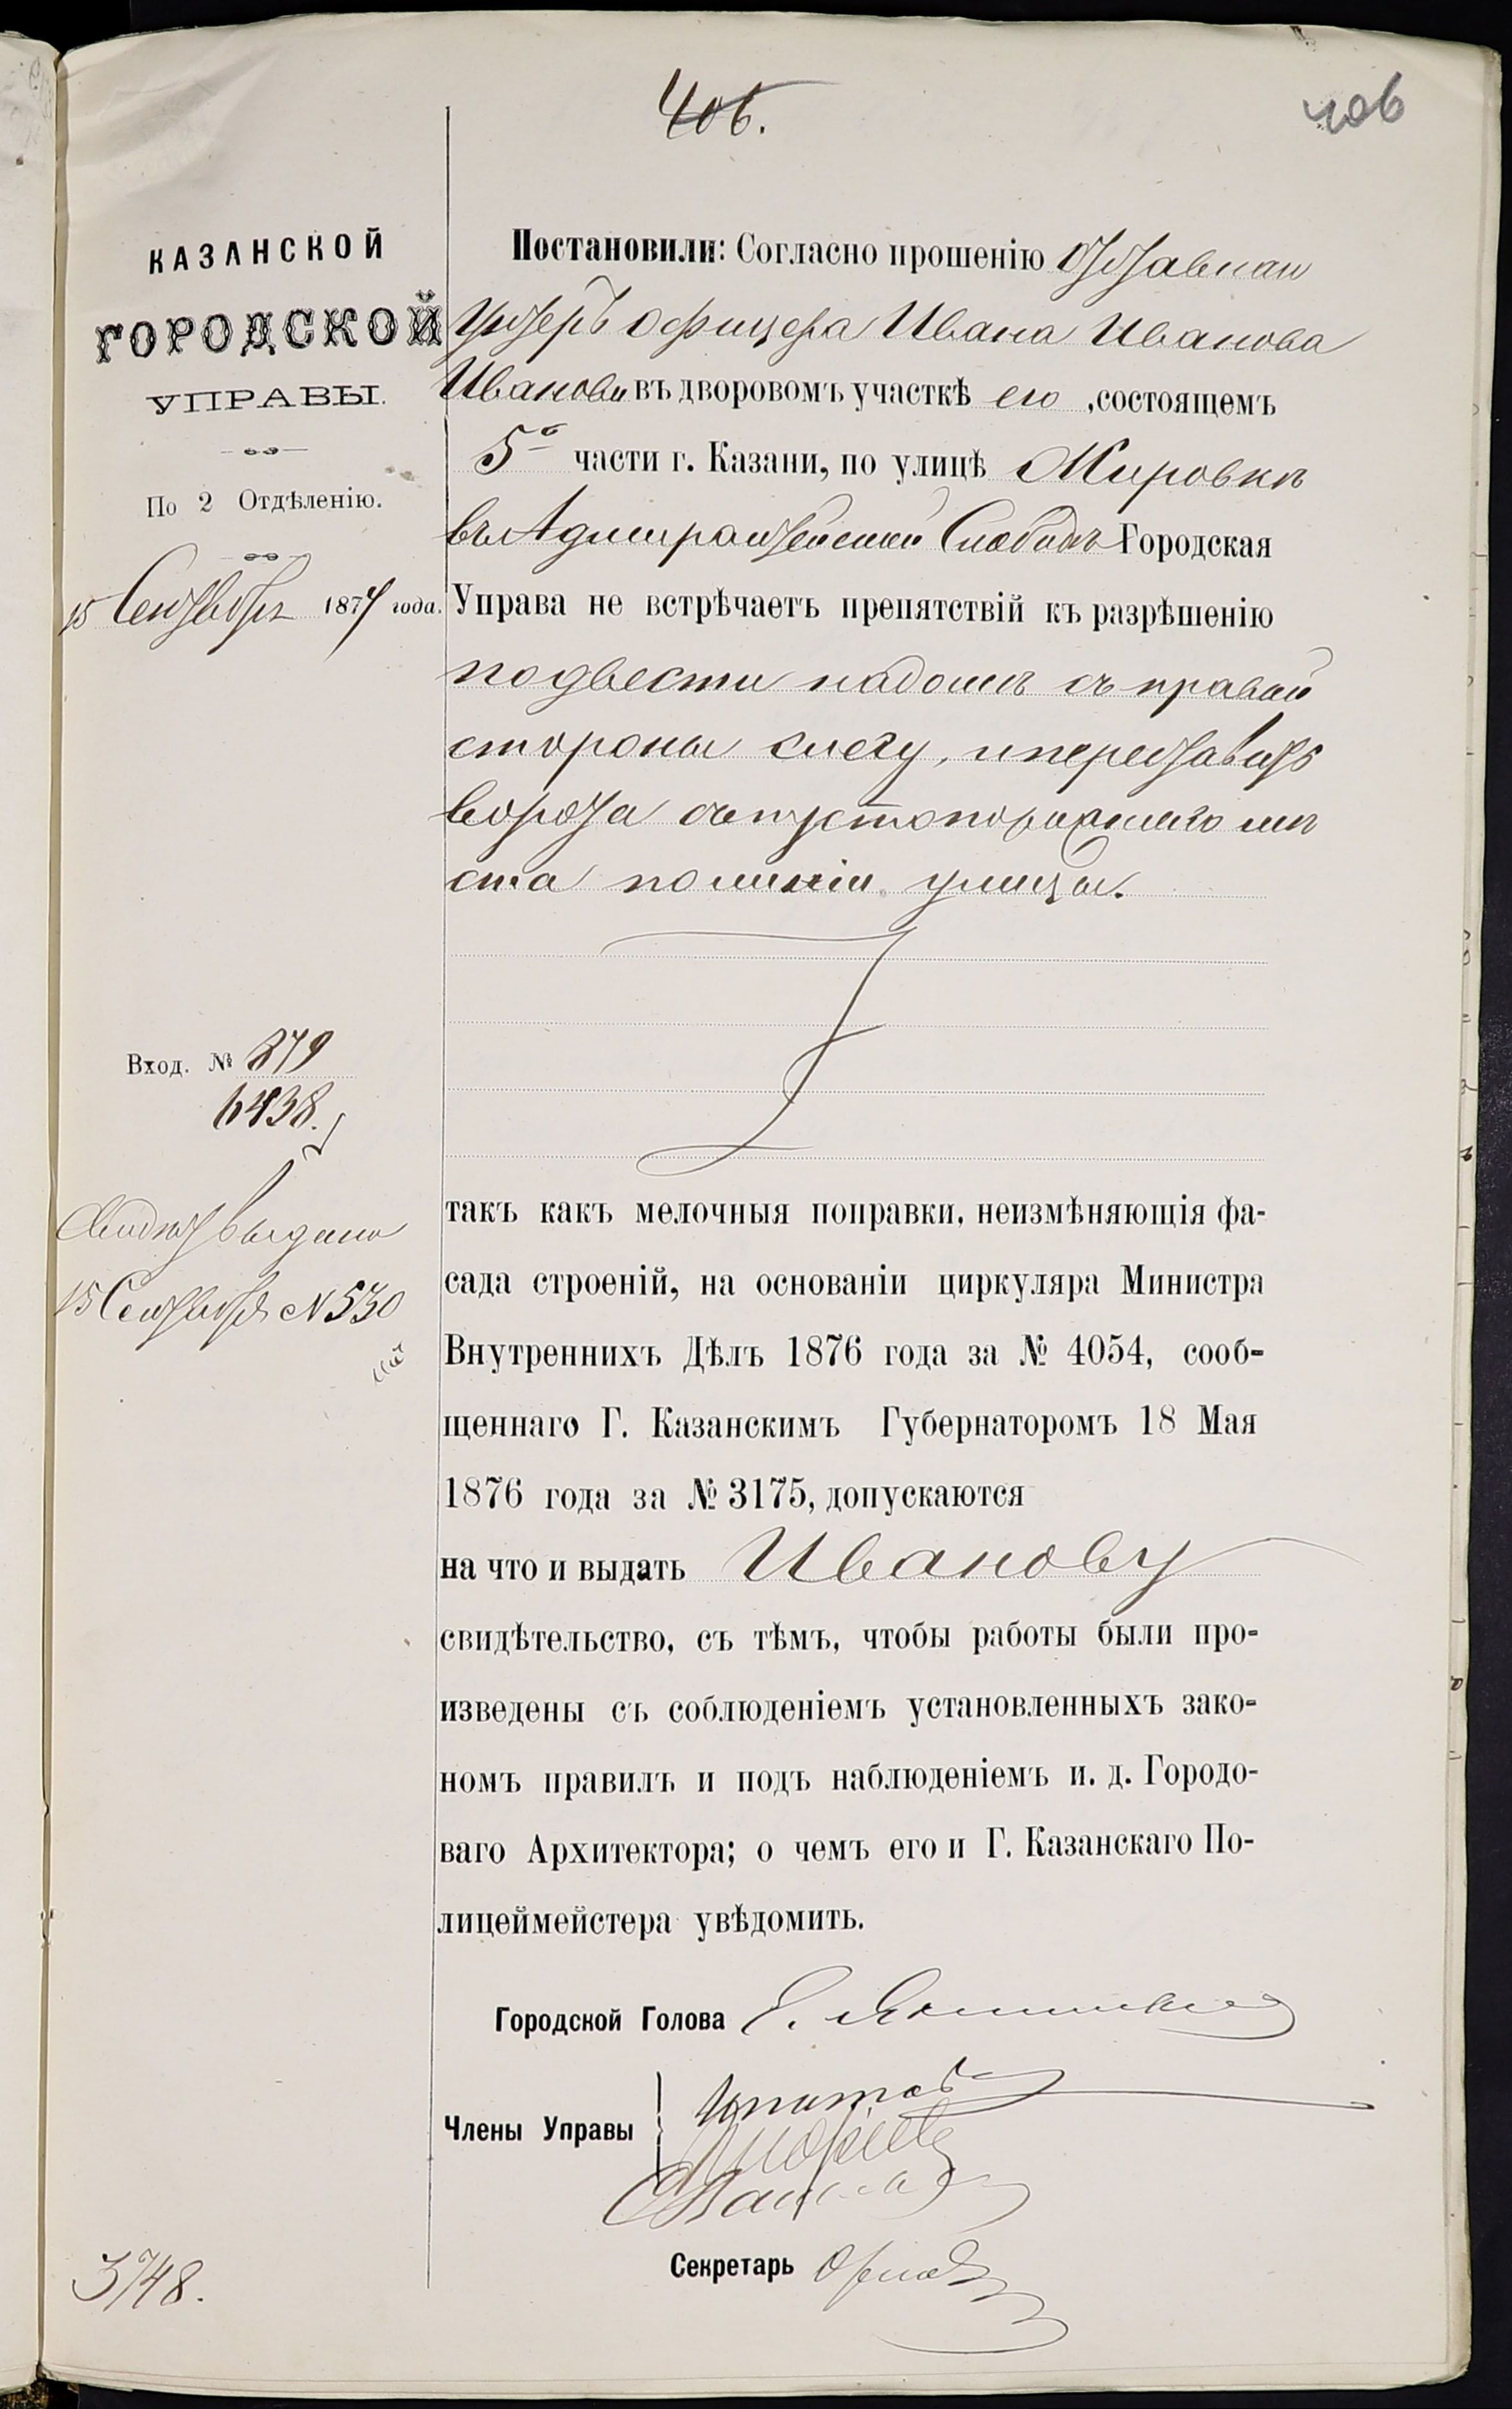 406.
406
КАЗАНСКОЙ
ГОРОДСКОЙ
УПРАВЫ.
По 2 Отдѣленію.
15 Сентября 1877 года.
Вход. № 879
6438.
выдано
15 Сентября № 530
3748.
Постановили: Согласно прошенію Отставнаи
Унтеръ офицера Ивана Иванова
Иванова въ дворовомъ участкѣ его, состоящемъ
5й части г. Казани, по улицѣ Кировкѣ
въ Адмиралтейской Слободѣ Городская
Управа не встрѣчаетъ препятствій къ разрѣшенію
подвести подъ домъ съ правой
стороны слегу, и переставить
ворота съ пустопорожняго мѣ
ста по линіи улицы.
такъ какъ мелочныя поправки, неизмѣняющія фа-
сада строеній, на основаніи циркуляра Министра
Внутреннихъ Дѣлъ 1876 года за № 4054, сооб-
щеннаго Г. Казанскимъ Губернаторомъ 18 Мая
1876 года за № 3175, допускаются
на что и выдать Иванову
свидѣтельство, съ тѣмъ, чтобы работы были про-
изведены съ соблюденіемъ установленныхъ зако-
номъ правилъ и подъ наблюденіемъ и. д. Городо-
ваго Архитектора; о чемъ его и Г. Казанскаго По-
лицеймейстера увѣдомить.
Городской Голова Е. Янишевскій
Члены Управы
Секретарь